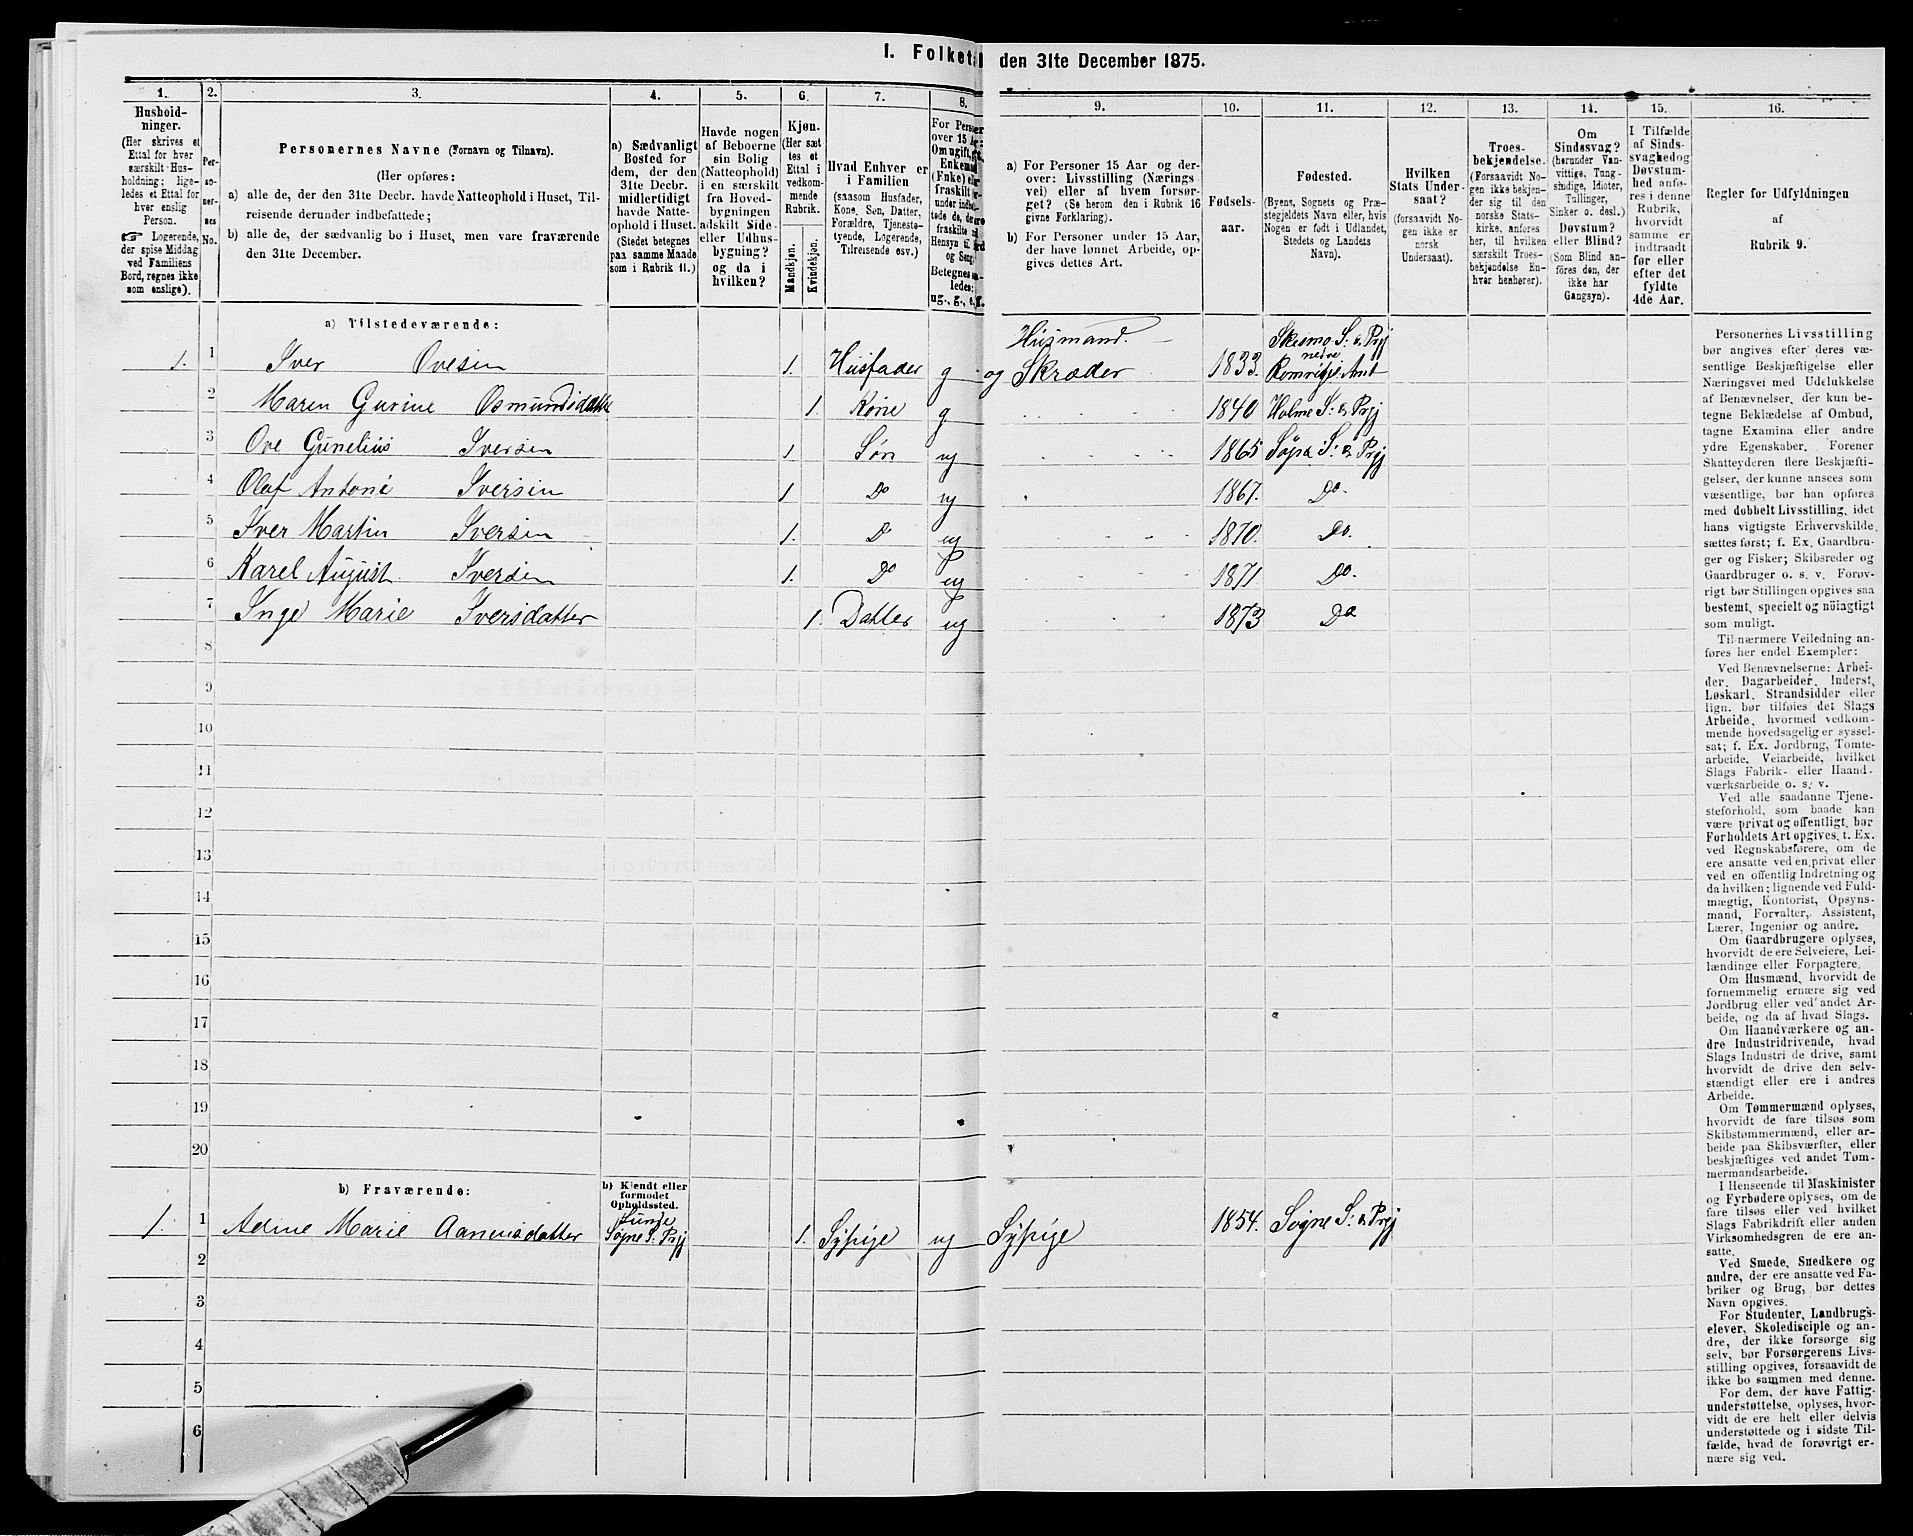 1. Folketal den 31te December 1875.
1. 2. 3. 4. 5. 6. 7. 8. 9. 10. 11. 12. 13. 14. 15. 16.
Hushold-
ninger.
(Her skrives et
Ettal for hver
særskilt Hus-
holdning; lige-
ledes et Ettal for
hver enslig
Person.
☞ Logerende,
der spise Middag
ved Familiens
Bord, regnes ikke
som enslige).
Per-
so-
ner-
nes
No.
Personernes Navne (Fornavn og Tilnavn).
(Her opføres:
a) alle de, der den 31te Decbr. havde Natteophold i Huset, Til-
reisende derunder indbefattede;
b) alle de, der sædvanlig bo i Huset, men vare fraværende
den 31te December.
a) Sædvanligt
Bosted for
dem, der den
31te Decbr.
midlertidigt
havde Natte-
ophold i Huset.
(Stedet betegnes
paa samme Maade
som i Rubrik 11.)
Havde nogen
af Beboerne
sin Bolig
(Natteophold)
i en særskilt
fra Hoved-
bygningen
adskilt Side-
eller Udhus-
bygning?
og da i
hvilken?
Kjøn.
(Her sæt
tes et
Ettal i
vedkom-
mende
Rubrik.
Mandkjøn.
Kvindekjøn.
Hvad Enhver er
i Familien
(saasom Husfader,
Kone, Søn, Datter,
Forældre, Tjeneste-
tyende, Logerende,
Tilreisende osv.)
For Person
over 15 Aar:
Om ugift, gift,
Enkemand
(Enke)
fraskilt
under
tede de,
fraskilte
Hensyn til
og Seng
Betegnes
ledes:
ug., g., e., f.
a) For Personer 15 Aar og der-
over: Livsstilling (Nærings
vei) eller af hvem forsør-
get? (Se herom den i Rubrik 16
givne Forklaring).
b) For Personer under 15 Aar,
der have lønnet Arbeide, op-
gives dettes Art.
Fødsels-
aar.
Fødested.
(Byens, Sognets og Præ-
stegjeldets Navn eller, hvis
Nogen er født i Udlandet,
Stedets og Landets
Navn).
Hvilken
Stats Under-
saat?
(forsaavidt No-
gen ikke er
norsk
Undersaat).
Troes-
bekjendelse.
(Forsaavidt No-
gen ikke bekjen-
der sig til den
norske Stats-
kirke, anføres
her, til hvilken
særskilt Troes-
bekjendelse En-
hver henhører).
Om
Sindssvag?
(herunder Van-
vittige, Tung-
sindige, Idioter,
Tullinger,
Sinker o. desl.)
Døvstum?
eller Blind?
(Som Blind an-
føres den, der
ikke har
Gangsyn).
I Tilfælde
af Sinds-
svaghed og
Døvstum-
hed anfø-
res i denne
Rubrik,
hvorvidt
samme er
indtraadt
før eller
efter det
fyldte
4de Aar.
Regler for Udfyldningen
af
Rubrik 9.
a) Tilstedeværende:
1. 1 Iver Ovesen 1. Husfader g Husmand. og Skræder 1833. Skesmo S: & Prgj nedre Romrikje Amt
2 Maren Gurine Osmundsdatter 1. Kone g 1840 Holme S: & Prgj
3 Ove Gunelius Iversen 1 Søn ug 1865 Søgne S: & Prgj
4 Olaf Antoni Iversen 1 Do ug 1867. Do.
5 Iver Martin Iversen 1. D ug 1870. Do.
6 Karel August Iversen 1. Do ug 1871 Do.
7 Inge Marie Iversdatter 1. Datter ug 1873 Do
8
9
10
11
12
13
14
15
16
17
18
19
20
b) Fraværende:
b) Kjendt eller
formodet
Opholdssted.
1. 1 Adine Marie Aanensdatter Lunde Søgne S: Prgj 1. Sypige ug Sypige 1854. Søgne S: & Prgj
2
3
4
5
6
Personernes Livsstilling
bør angives efter deres væ-
sentlige Beskjæftigelse eller
Næringsvei med Udelukkelse
af Benævnelser, der kun be-
tegne Beklædelse af Ombud,
tagne Examina eller andre
ydre Egenskaber. Forener
Skatteyderen flere Beskjæfti-
gelser, der kunne ansees som
væsentlige, bør han opføres
med dobbelt Livsstilling, idet
hans vigtigste Erhvervskilde
sættes først; f. Ex. Gaardbru-
ger og Fisker; Skibsreder og
Gaardbruger o. s. v. Forøv-
rigt bør Stillingen opgives saa
bestemt, specielt og nöiagtigt
som muligt.
Til nærmere Veiledning an-
føres her endel Exempler:
Ved Benævnelserne: Arbei-
der, Dagarbeider, Inderst,
Løskarl, Strandsidder eller
lign. bør tilføies det Slags
Arbeide, hvormed vedkom-
mende hovedsagelig er syssel-
sat; f. Ex. Jordbrug, Tomte-
arbeide, Veiarbeide, hvilket
Slags Fabrik- eller Haand-
værksarbeide o. s. v.
Ved alle saadanne Tjene-
steforhold, som baade kan
være privat og offentligt, bør
Forholdets Art opgives, t. Ex.
ved Regnskabsførere, om de
ere ansatte ved en privat eller
ved en offentlig Indretning og
da hvilken; lignende ved Fuld-
mægtig, Kontorist, Opsyns-
mand, Forvalter, Assistent,
Lærer, Ingeniør og andre.
Om Gaardbrugere oplyses,
hvorvidt de ere Selveiere, Lei-
lændinge eller Forpagtere.
Om Husmænd, hvorvidt de
fornemmelig ernære sig ved
Jordbrug eller ved andet Ar-
beide, og da af hvad Slags.
Om Haandværkere og an-
dre Industridrivende, hvad
Slags Industri de drive, samt
hvorvidt de drive den selv-
stændigt eller ere i andres
Arbeide.
Om Tømmermænd oplyses,
hvorvidt de fare tilsøs som
Skibstømmermænd, eller ar-
beide paa Skibsværfter, eller
beskjæftiges ved andet Tøm-
mermandsarbeide.
I Henseende til Maskinister
og Fyrbødere oplyses, om de
fare tilsøs eller ved hvilket
Slags Fabrikdrift eller anden
Virksomhedsgren de ere an-
satte.
Ved Smede, Snedkere og
andre, der ere ansatte ved Fa-
briker og Brug, bør dettes
Navn opgives.
For Studenter, Landbrugs-
elever, Skoledisciple og an-
dre, der ikke forsørge sig
selv, bør Forsørgerens Livs-
stilling opgives, forsaavidt de
ikke bo sammen med denne.
For dem, der have Fattig-
understøttelse, oplyses, hvor-
vidt de ere helt eller delvis
understøttede og i sidste Til-
fælde, hvad de forøvrigt er-
nære sig ved.